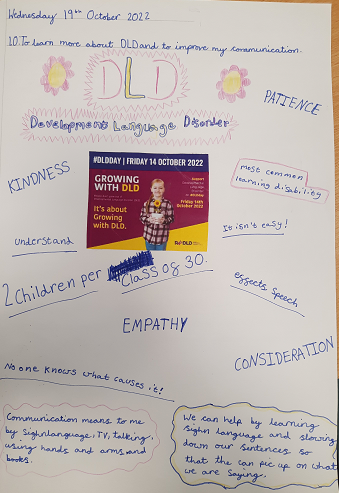 Wednesday 19th October 2022
LO. To learn more about DLD and to improve my communication.
DLD
Development Language Disorder
PATIENCE
KINDNESS
#DLDDAY | FRIDAY 14 OCTOBER 2022
GROWING
WITH DLD
It's about
Growing
with DLD.
Support
Developmental
Language
Disorder
Friday 14th
October 2022
RADLD
most common
learning disability
understand
It isn't easy!
2 Children per Class og 30.
effects speech
EMPATHY
CONSIDERATION
No one knows what causes it!
Communication means to me
by sighnlanguage, TV, talking,
using hands and arms and
books.
We can help by learning
sighn language and slowing
down our sentences so
that the can pic up on what
we are saying.